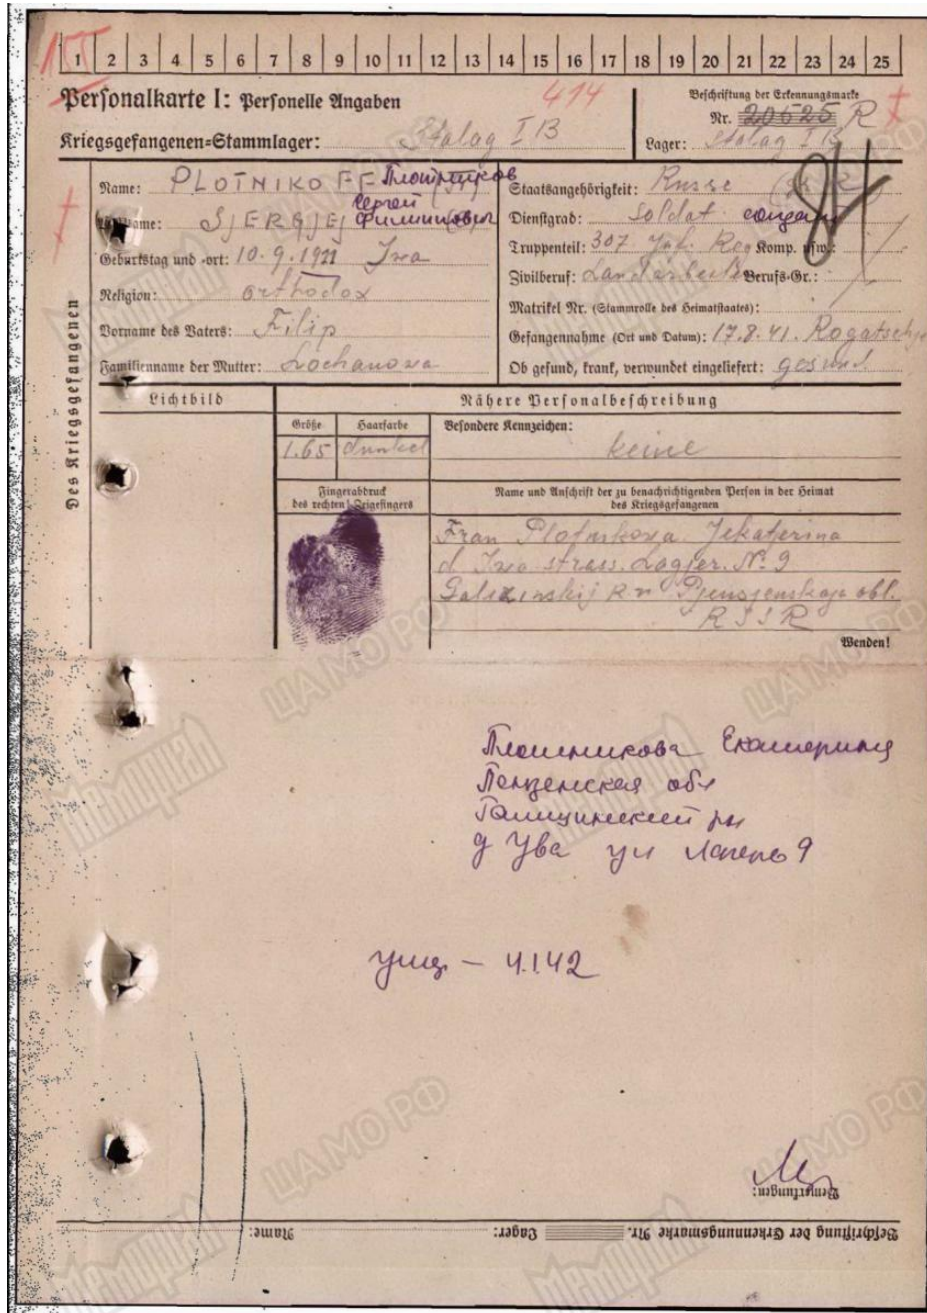 155
1 2 3 4 5 6 7 8 9 10 11 12 13 14 15 16 17 18 19 20 21 22 23 24 25
Personalkarte I: Personelle Angaben
414
Kriegsgefangenen=Stammlager: Stalag I B
Beschriftung der Erkennungsmarke
Nr. 20525 R
Lager: Stalag I B
Des Kriegsgefangenen
Name: PLOTNIKOFF Плотников
Vorname: SJERGJEJ Сергей Филиппович
Geburtstag und -ort: 10.9.1911 Iwa
Religion: orthodox
Vorname des Vaters: Filip
Familienname der Mutter: Lochanova
Staatsangehörigkeit: Russe
Dienstgrad: Soldat солдат
Truppenteil: 307 Inf. Reg Komp. usw.:
Zivilberuf: Landarbeiter Berufs-Gr.:
Matrikel Nr. (Stammrolle des Heimatstaates):
Gefangennahme (Ort und Datum): 17.8.41. Rogatschew
Ob gesund, krank, verwundet eingeliefert: gesund
Lichtbild
Nähere Personalbeschreibung
Größe Haarfarbe Besondere Kennzeichen:
1.65 dunkel keine
Fingerabdruck
des rechten Zeigefingers
Name und Anschrift der zu benachrichtigenden Person in der Heimat
des Kriegsgefangenen
Frau Plotnikova Jekaterina
d. Iwa strass. Lagjer. № 9
obl.
RSSR
Wenden!
Плотникова Екатерина
Пензенская обл
д Ува ул Лагерь 9
умер – 4.1.42
Bemerkungen:
Beschriftung der Erkennungsmarke Nr. Lager: Name:
Мемориал
ЦАМО РФ